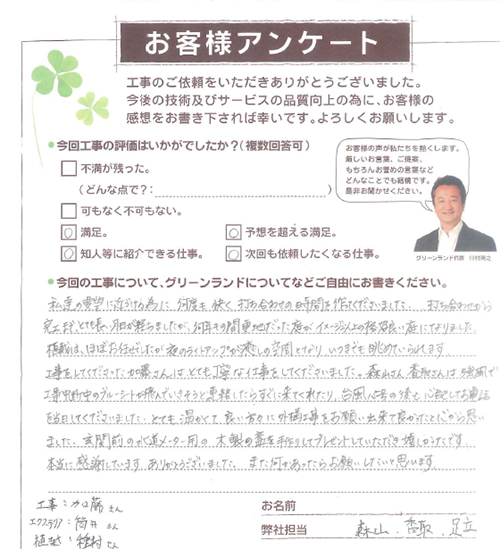 お客様アンケート
工事のご依頼をいただきありがとうございました。
今後の技術及びサービスの品質向上の為に、お客様の
感想をお書き下されば幸いです。よろしくお願いします。
●今回工事の評価はいかがでしたか?(複数回答可)
不満が残った。
(どんな点で?: )
可もなく不可もない。
○ 満足。
○ 予想を超える満足。
○ 知人等に紹介できる仕事。
○ 次回も依頼したくなる仕事。
お客様の声が私たちを熱くします。
厳しいお言葉、ご提案、
もちろんお誉めの言葉など
どんなことでも結構です。
是非お聞かせください。
グリーンランド代表
●今回の工事について、グリーンランドについてなどご自由にお書きください。
私達の要望に近づける為に、何度も快く打ち合わせの時間を作ってくださいました。打ち合わせから
完工まで、とても長い月日が経ちましたが、イメージ以上の格好良い庭になりました。
植栽は、ほぼお任せでしたが夜のライトアップが癒しの空間となり、いつまでも眺めていられます
工事をしてくださった加藤さんは、とても丁寧な仕事をしてくださいました。森山さん香取さんは
工事中のブルーシートが飛んでいきそうと連絡したらすぐに来てくれたり、台風の後も心配してお電話
を当日してくださいました。とても温かくて良い方々に外構工事をお願い出来て良かったと心から思い
ました。玄関前の水道メーター用の木製の蓋を手作りしてプレゼントしていただき嬉しかったです
本当に感謝しています。ありがとうございました。また何かあったらお願いしたいと思います。
工事:加藤さん
エクステリア:筒井さん
植栽:種村さん
お名前
弊社担当 森山、香取、足立